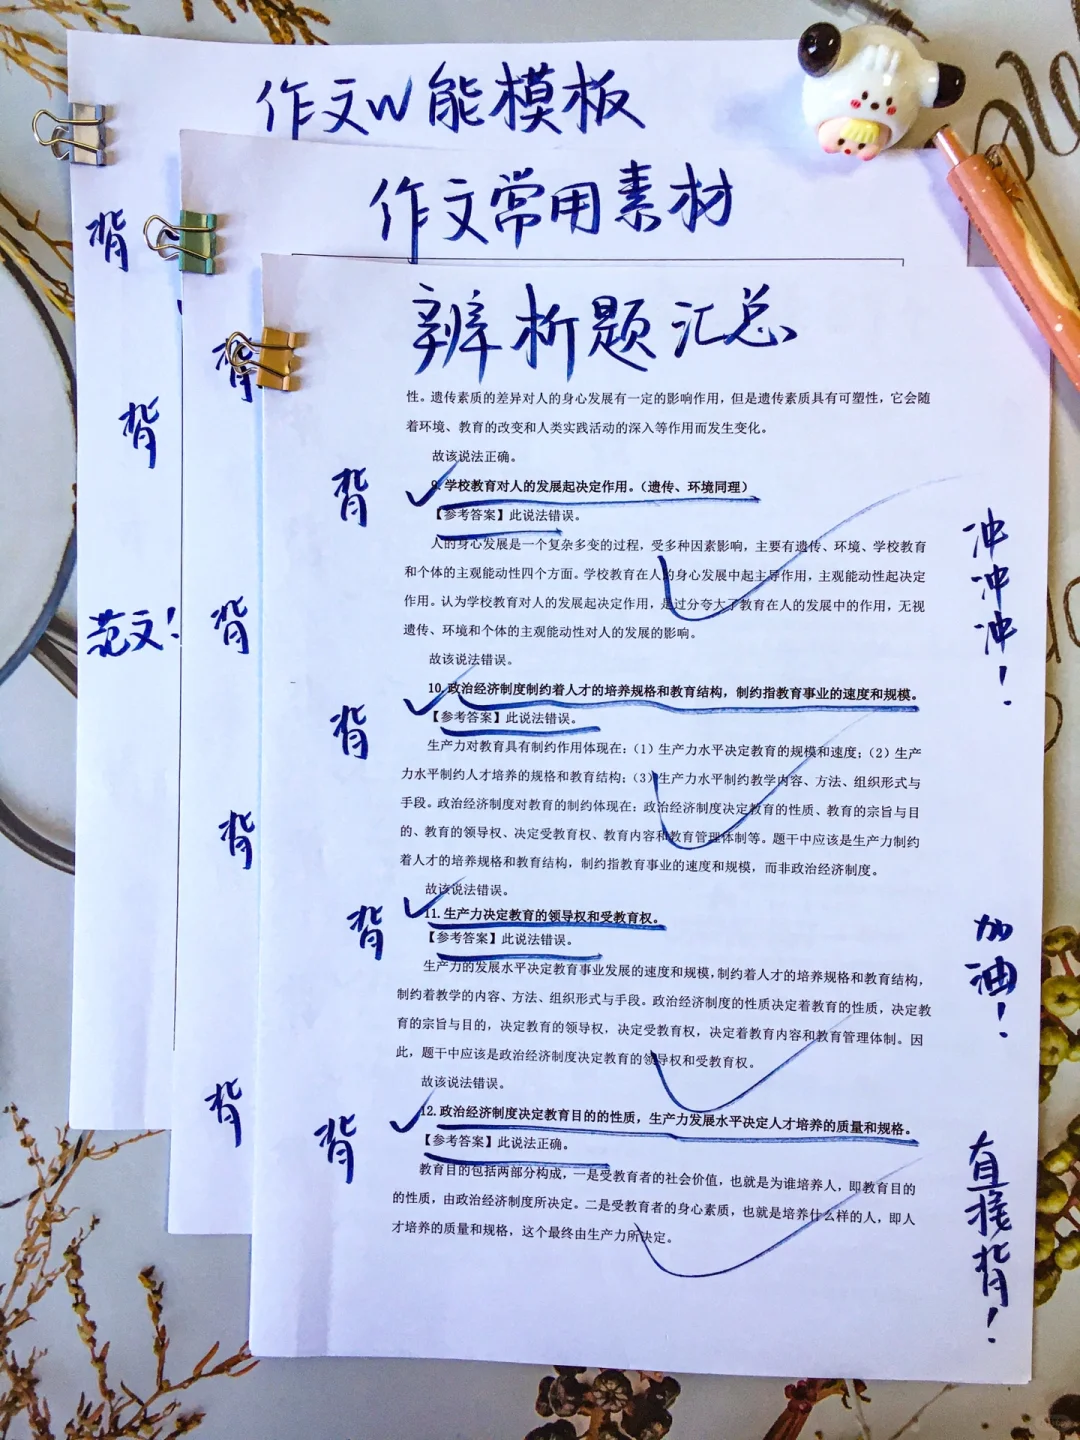 作文W能模板
作文常用素材
辨析题汇总
背
背
范文！
背
背
背
背
背
背
背
背
性。遗传素质的差异对人的身心发展有一定的影响作用，但是遗传素质具有可塑性，它会随
着环境、教育的改变和人类实践活动的深入等作用而发生变化。
故该说法正确。
9.学校教育对人的发展起决定作用。（遗传、环境同理）
【参考答案】此说法错误。
人的身心发展是一个复杂多变的过程，受多种因素影响，主要有遗传、环境、学校教育
和个体的主观能动性四个方面。学校教育在人的身心发展中起主导作用，主观能动性起决定
作用。认为学校教育对人的发展起决定作用，是过分夸大了教育在人的发展中的作用，无视
遗传、环境和个体的主观能动性对人的发展的影响。
故该说法错误。
10.政治经济制度制约着人才的培养规格和教育结构，制约指教育事业的速度和规模。
【参考答案】此说法错误。
生产力对教育具有制约作用体现在：（1）生产力水平决定教育的规模和速度；（2）生产
力水平制约人才培养的规格和教育结构；（3）生产力水平制约教学内容、方法、组织形式与
手段。政治经济制度对教育的制约体现在：政治经济制度决定教育的性质、教育的宗旨与目
的、教育的领导权、决定受教育权、教育内容和教育管理体制等。题干中应该是生产力制约
着人才的培养规格和教育结构，制约指教育事业的速度和规模，而非政治经济制度。
故该说法错误。
11.生产力决定教育的领导权和受教育权。
【参考答案】此说法错误。
生产力的发展水平决定教育事业发展的速度和规模，制约着人才的培养规格和教育结构，
制约着教学的内容、方法、组织形式与手段。政治经济制度的性质决定着教育的性质，决定教
育的宗旨与目的，决定教育的领导权，决定受教育权，决定着教育内容和教育管理体制。因
此，题干中应该是政治经济制度决定教育的领导权和受教育权。
故该说法错误。
12.政治经济制度决定教育目的的性质，生产力发展水平决定人才培养的质量和规格。
【参考答案】此说法正确。
教育目的包括两部分构成，一是受教育者的社会价值，也就是为谁培养人，即教育目的
的性质，由政治经济制度所决定。二是受教育者的身心素质，也就是培养什么样的人，即人
才培养的质量和规格，这个最终由生产力所决定。
冲冲冲！
加油！
直接背！